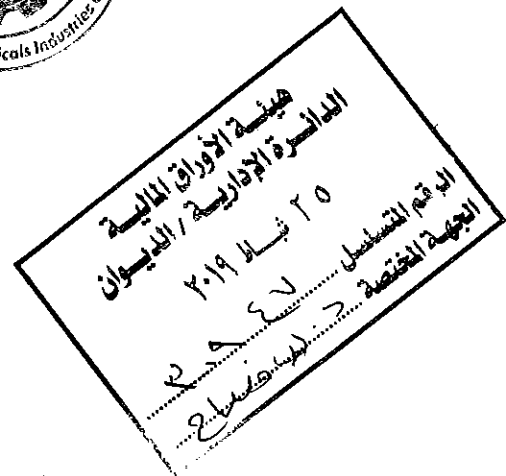 icals Industries
هيئة الأوراق المالية
الدائرة الإدارية / الديوان
٢٥ شباط ٢٠١٩
الرقم المتسلسل
الجهة المختصة